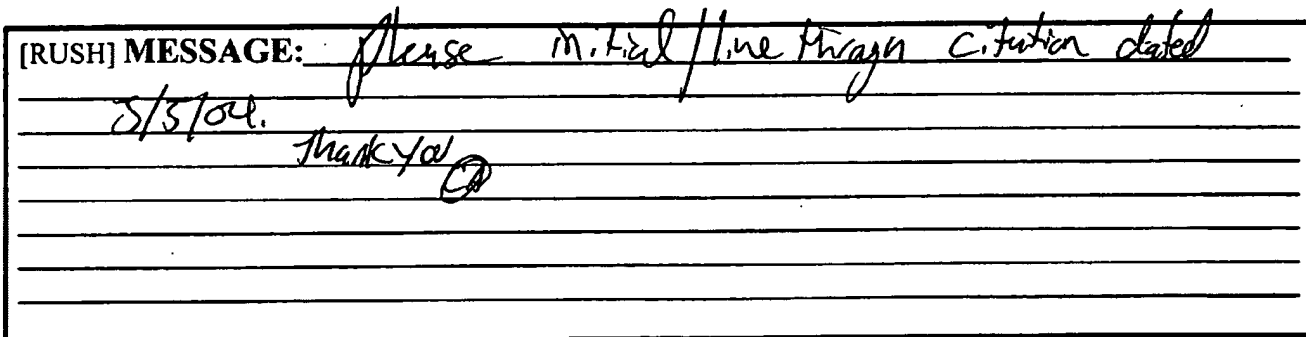 [RUSH] MESSAGE: Please initial/line through citation dated
3/5/04.
Thank you